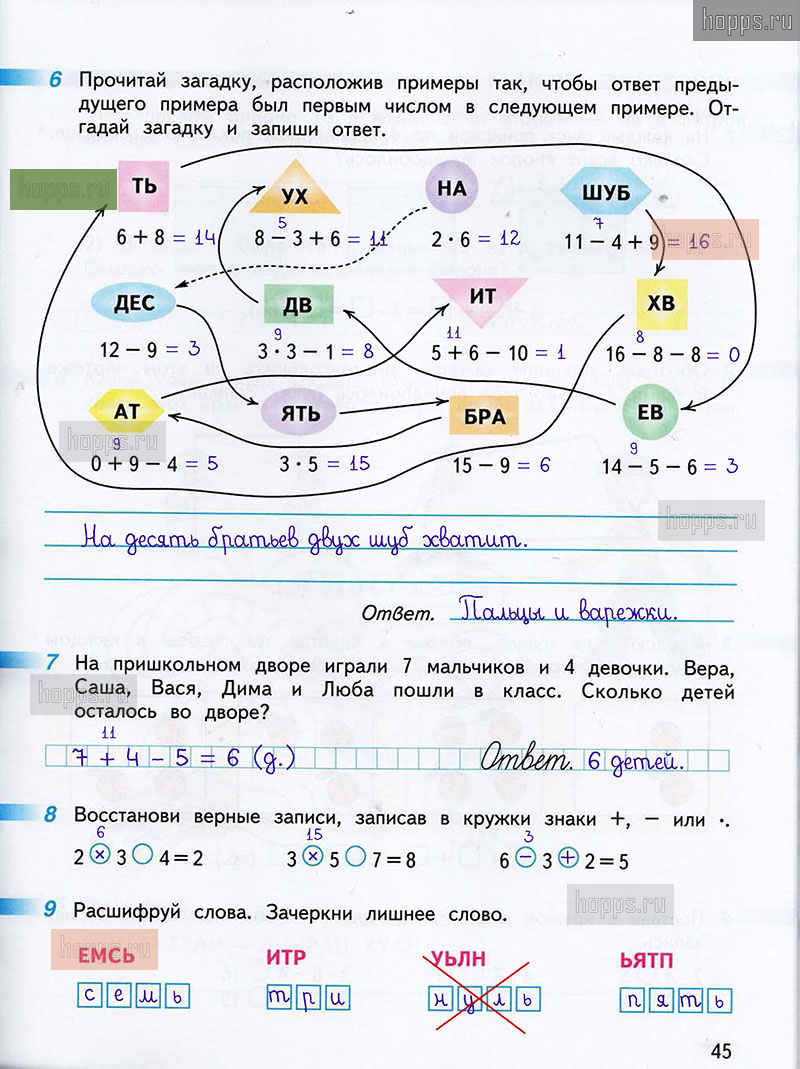 hopps.ru
6 Прочитай загадку, расположив примеры так, чтобы ответ преды-
дущего примера был первым числом в следующем примере. От-
гадай загадку и запиши ответ.
hopps.ru
ТЬ УХ НА ШУБ
5 7
6 + 8 = 14 8 − 3 + 6 = 11 2 · 6 = 12 11 − 4 + 9 = 16
hopps.ru
ДЕС ДВ ИТ ХВ
9 11 8
12 − 9 = 3 3 · 3 − 1 = 8 5 + 6 − 10 = 1 16 − 8 − 8 = 0
АТ ЯТЬ БРА ЕВ
hopps.ru
9 9
0 + 9 − 4 = 5 3 · 5 = 15 15 − 9 = 6 14 − 5 − 6 = 3
hopps.ru
На десять братьев двух шуб хватит.
Ответ. Пальцы и варежки.
7 На пришкольном дворе играли 7 мальчиков и 4 девочки. Вера,
Саша, Вася, Дима и Люба пошли в класс. Сколько детей
hopps.ru
осталось во дворе?
11
7 + 4 − 5 = 6 (д.) Ответ. 6 детей.
8 Восстанови верные записи, записав в кружки знаки +, − или ·.
6 15 3
2 × 3 4 = 2 3 × 5 7 = 8 6 − 3 + 2 = 5
hopps.ru
9 Расшифруй слова. Зачеркни лишнее слово.
hopps.ru
ЕМСЬ ИТР УЬЛН ЬЯТП
семь три нуль пять
45